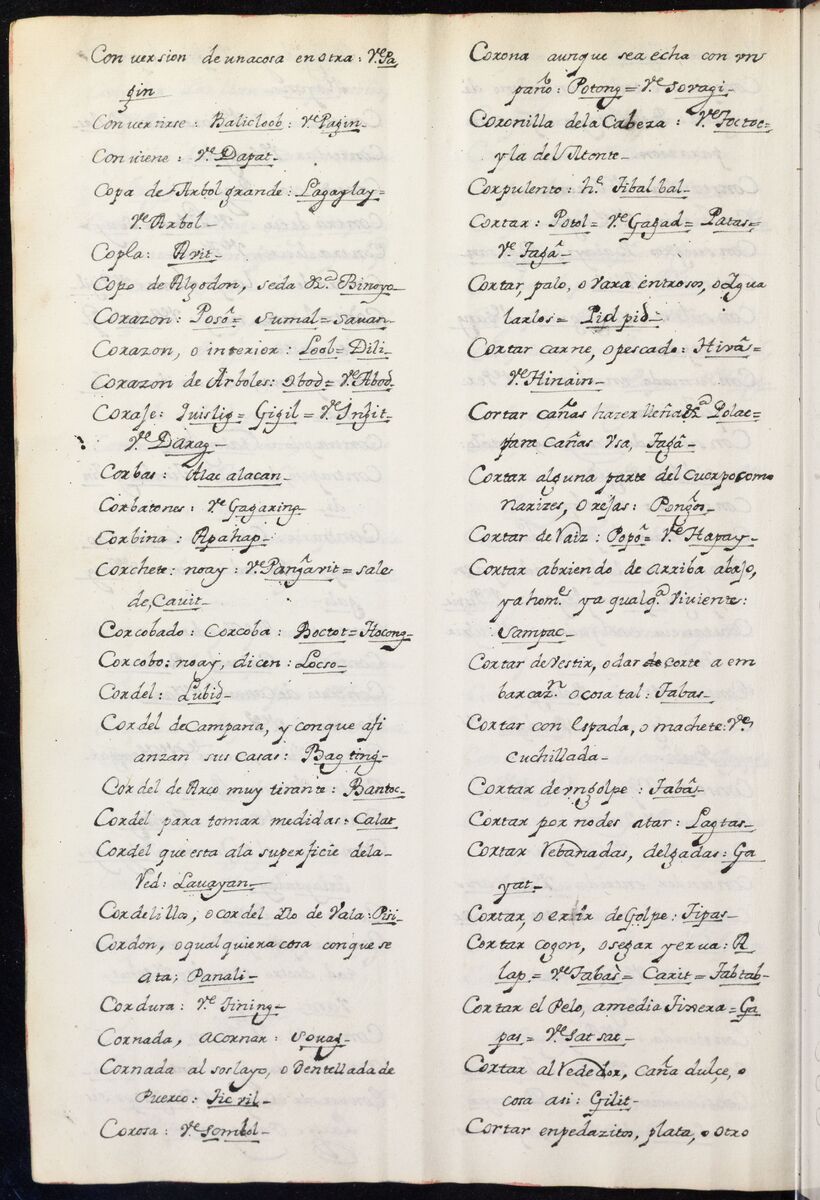 Conversion de una cosa en otra: Vᵉ Pa
gin
Convertirse: Baliclocò: Vᵉ Pagin_
Conviene: Vᵉ Dapat_
Copa de Arbol grande: Lagaylay=
Vᵉ Arbol_
Copla: Avit_
Copo de Algodon, seda &ᵃ Binoyo_
Corazon: Posô= sumal= Sauan_
Corazon, o interior: Lool= Dili_
Corazon de Arboles: Obod= Vᵉ Abod_
Coraje: Quislig= Gigil= Vᵉ Ingit_
Vᵉ Darag_
Corbas: Alac alacan_
Corbatones: Vᵉ Gagaring_
Corbina: Apahap_
Corchete: no ay: Vᵉ Pangavit= sale
de, Cauit_
Corcobado: Corcoba: Boctot= Hocong_
Corcobo: no ay, dicen: Locso_
Cordel: Lubid_
Cordel de Campana, y con que afi
anzan sus casas: Bagting_
Cordel de Arco muy tirante: Bantoc_
Cordel para tomar medidas: Calat
Cordel que esta ala superficie dela
Ved: Lauayan_
Cordelillo, o cordel Ilo de Vala: Pisi_
Cordon, o qual quiera cosa con que se
ata; Panali_
Cordura: Vᵉ Tining_
Cornada, acornar: Souag_
Cornada al soslayo, o Dentellada de
Puerco: Ticvil_
Corosa: Vᵉ Sombol_
Corona aunque sea echa con vn
paño: Potong= Vᵉ Soragi_
Coronilla dela Cabeza: Vᵉ Toctoc=
y la del Monte_
Corpulento: hᵉ Tibalbal_
Cortar: Potol= Vᵉ Gagad= Patas=
Vᵉ Tagâ_
Cortar, palo, o Vara entrosos, o Igua
larlos= Pidpid_
Cortar carne, o pescado: Hivâ=
Vᵉ Hinain_
Cortar cañas hazer lleña &ᵃ Polac=
para Cañas Vsa, Tagâ_
Cortar alguna parte del cuerpo como
narizes, orejas: Pongos_
Cortar de Vaiz: Popô= Vᵉ Hapay_
Cortar abriendo de arriba abajo,
ya homᵉ ya qualqᵃ Viviente:
Sampac_
Cortar de Vestir, o dar corte a em
barcazⁿ o cosa tal: Tabas_
Cortar con Espada, o machete: Vᵉ
cuchillada_
Cortar de vn golpe: Tabâs_
Cortar por nodes atar: Lagtas_
Cortar Vebanadas, delgadas: Ga
yat_
Cortar, o erir de Golpe: Tipas_
Cortar cogon, o segar yerua: A
lap= Vᵉ Tabas= Carit= Tabtab_
Cortar el Pelo, a media Tixera= Ga
pas= Vᵉ Satsat_
Cortar al Vededor, caña dulce, o
cosa asi: Gilit_
Cortar en pedazitos, plata, o otro